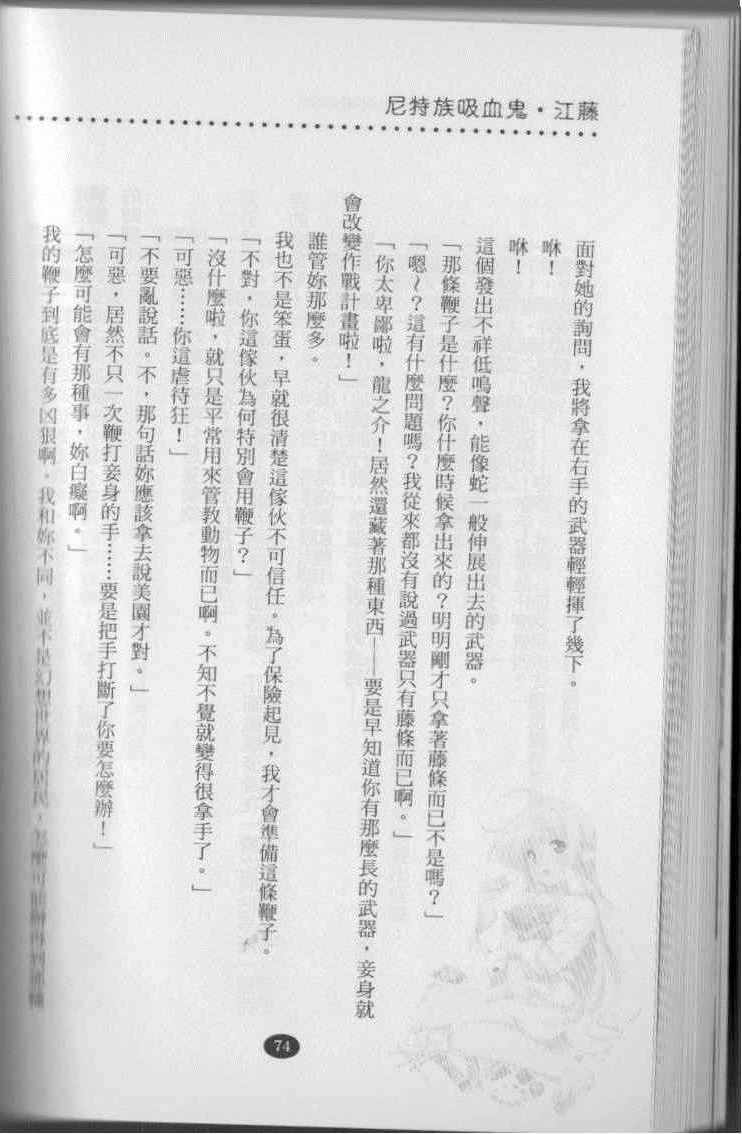 尼特族吸血鬼・江藤
面對她的詢問，我將拿在右手的武器輕輕揮了幾下。
咻！
咻！
這個發出不祥低鳴聲，能像蛇一般伸展出去的武器。
「那條鞭子是什麼？你什麼時候拿出來的？明明剛才只拿著藤條而已不是嗎？」
「嗯～？這有什麼問題嗎？我從來都沒有說過武器只有藤條而已啊。」
「你太卑鄙啦，龍之介！居然還藏著那種東西——要是早知道你有那麼長的武器，妾身就
會改變作戰計畫啦！」
誰管妳那麼多。
我也不是笨蛋，早就很清楚這傢伙不可信任。為了保險起見，我才會準備這條鞭子。
「不對，你這傢伙為何特別會用鞭子？」
「沒什麼啦，就只是平常用來管教動物而已啊。不知不覺就變得很拿手了。」
「可惡……你這虐待狂！」
「不要亂說話。不，那句話妳應該拿去說美園才對。」
「可惡，居然不只一次鞭打妾身的手……要是把手打斷了你要怎麼辦！」
「怎麼可能會有那種事，妳白癡啊。」
我的鞭子到底是有多凶狠啊。我和妳不同，並不是幻想世界的居民，怎麼可能
74